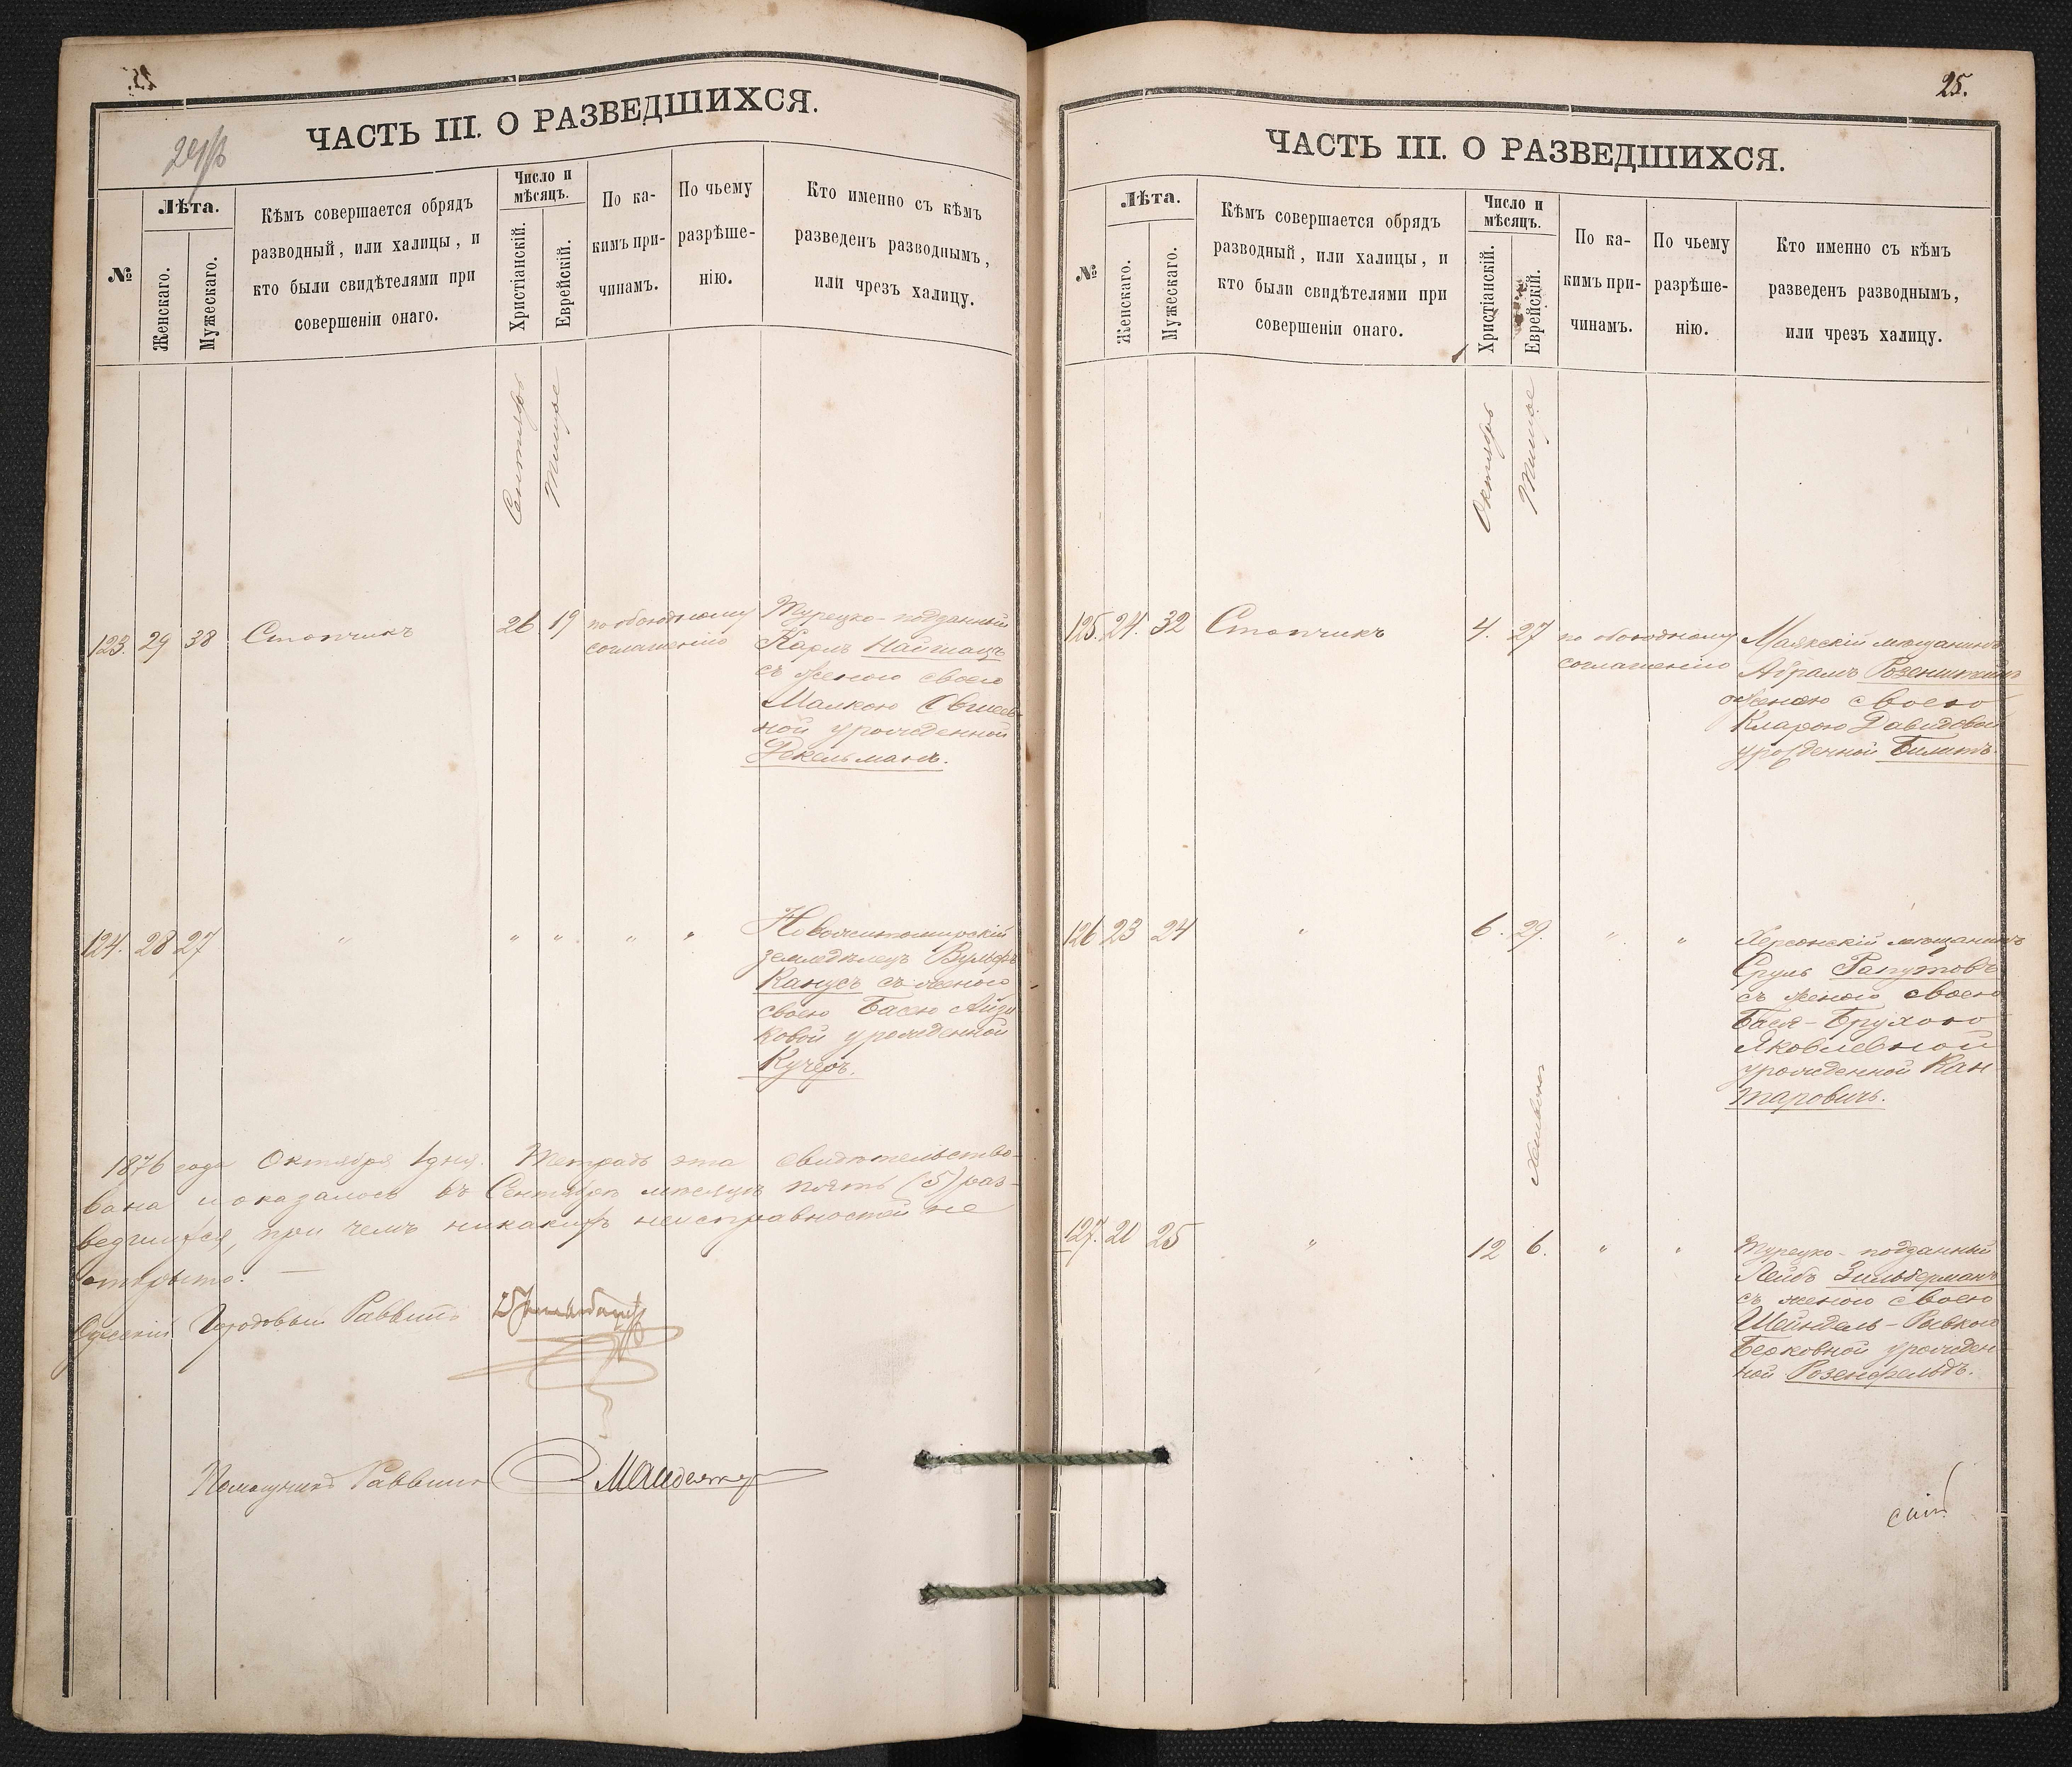 ЧАСТЬ III. О РАЗВЕДШИХСЯ.
№
Лѣта.
Женскаго.
Мужескаго.
Кѣмъ совершается обрядъ
разводный, или халицы, и
кто были свидѣтелями при
совершеніи онаго.
Число и
мѣсяцъ.
Христіанскій.
Еврейскій.
По ка-
кимъ при-
чинамъ.
По чьему
разрѣше-
нію.
Кто именно съ кѣмъ
разведенъ разводнымъ,
или чрезъ халицу.
Сентябрь
Тишре
123. 29 38 Стопчикъ 26 19 по обоюдному
соглашенію
Турецко-подданный
Карлъ
съ женою своею
Малкою
ной урожденной
Фекельманъ.
124. 28 27 " " " " "
Новожитомирскій
земледѣлецъ Вульфъ
Канусъ съ женою
своею Басею Айзи
ковой урожденной
Кучеръ.
1876 года Октября 1 дня. Тетрадь эта свидѣтельство-
вана и оказалось въ Сентябрѣ мѣсяцѣ пять (5) раз-
ведшихся, при чемъ никакихъ неисправностей не
открыто. —
Одесскій Городовый Раввинъ
Помощникъ Раввина
25.
ЧАСТЬ III. О РАЗВЕДШИХСЯ.
№
Лѣта.
Женскаго.
Мужескаго.
Кѣмъ совершается обрядъ
разводный, или халицы, и
кто были свидѣтелями при
совершеніи онаго.
Число и
мѣсяцъ.
Христіанскій.
Еврейскій.
По ка-
кимъ при-
чинамъ.
По чьему
разрѣше-
нію.
Кто именно съ кѣмъ
разведенъ разводнымъ,
или чрезъ халицу.
Октябрь
Тишре
125. 24. 32 Стопчикъ 4. 27 по обоюдному
соглашенію
Маякскій мѣщанинъ
Абрамъ Розенштейнъ
женою своею
Кларою Давидовой
урожденной
126 23 24 " 6. 29. " "
Херсонскій мѣщанинъ
Сруль Рапутовъ
съ женою своею
Бася-Брухою
Яковлевной
урожденной Кан
таровичъ.
Хешвонъ
127. 20 25 " 12 6. " "
Турецко-подданный
Лейбъ Зильберманъ
съ женою своею
Шейндель-Ривкою
Берковной урожден-
ной Розенфельдъ.